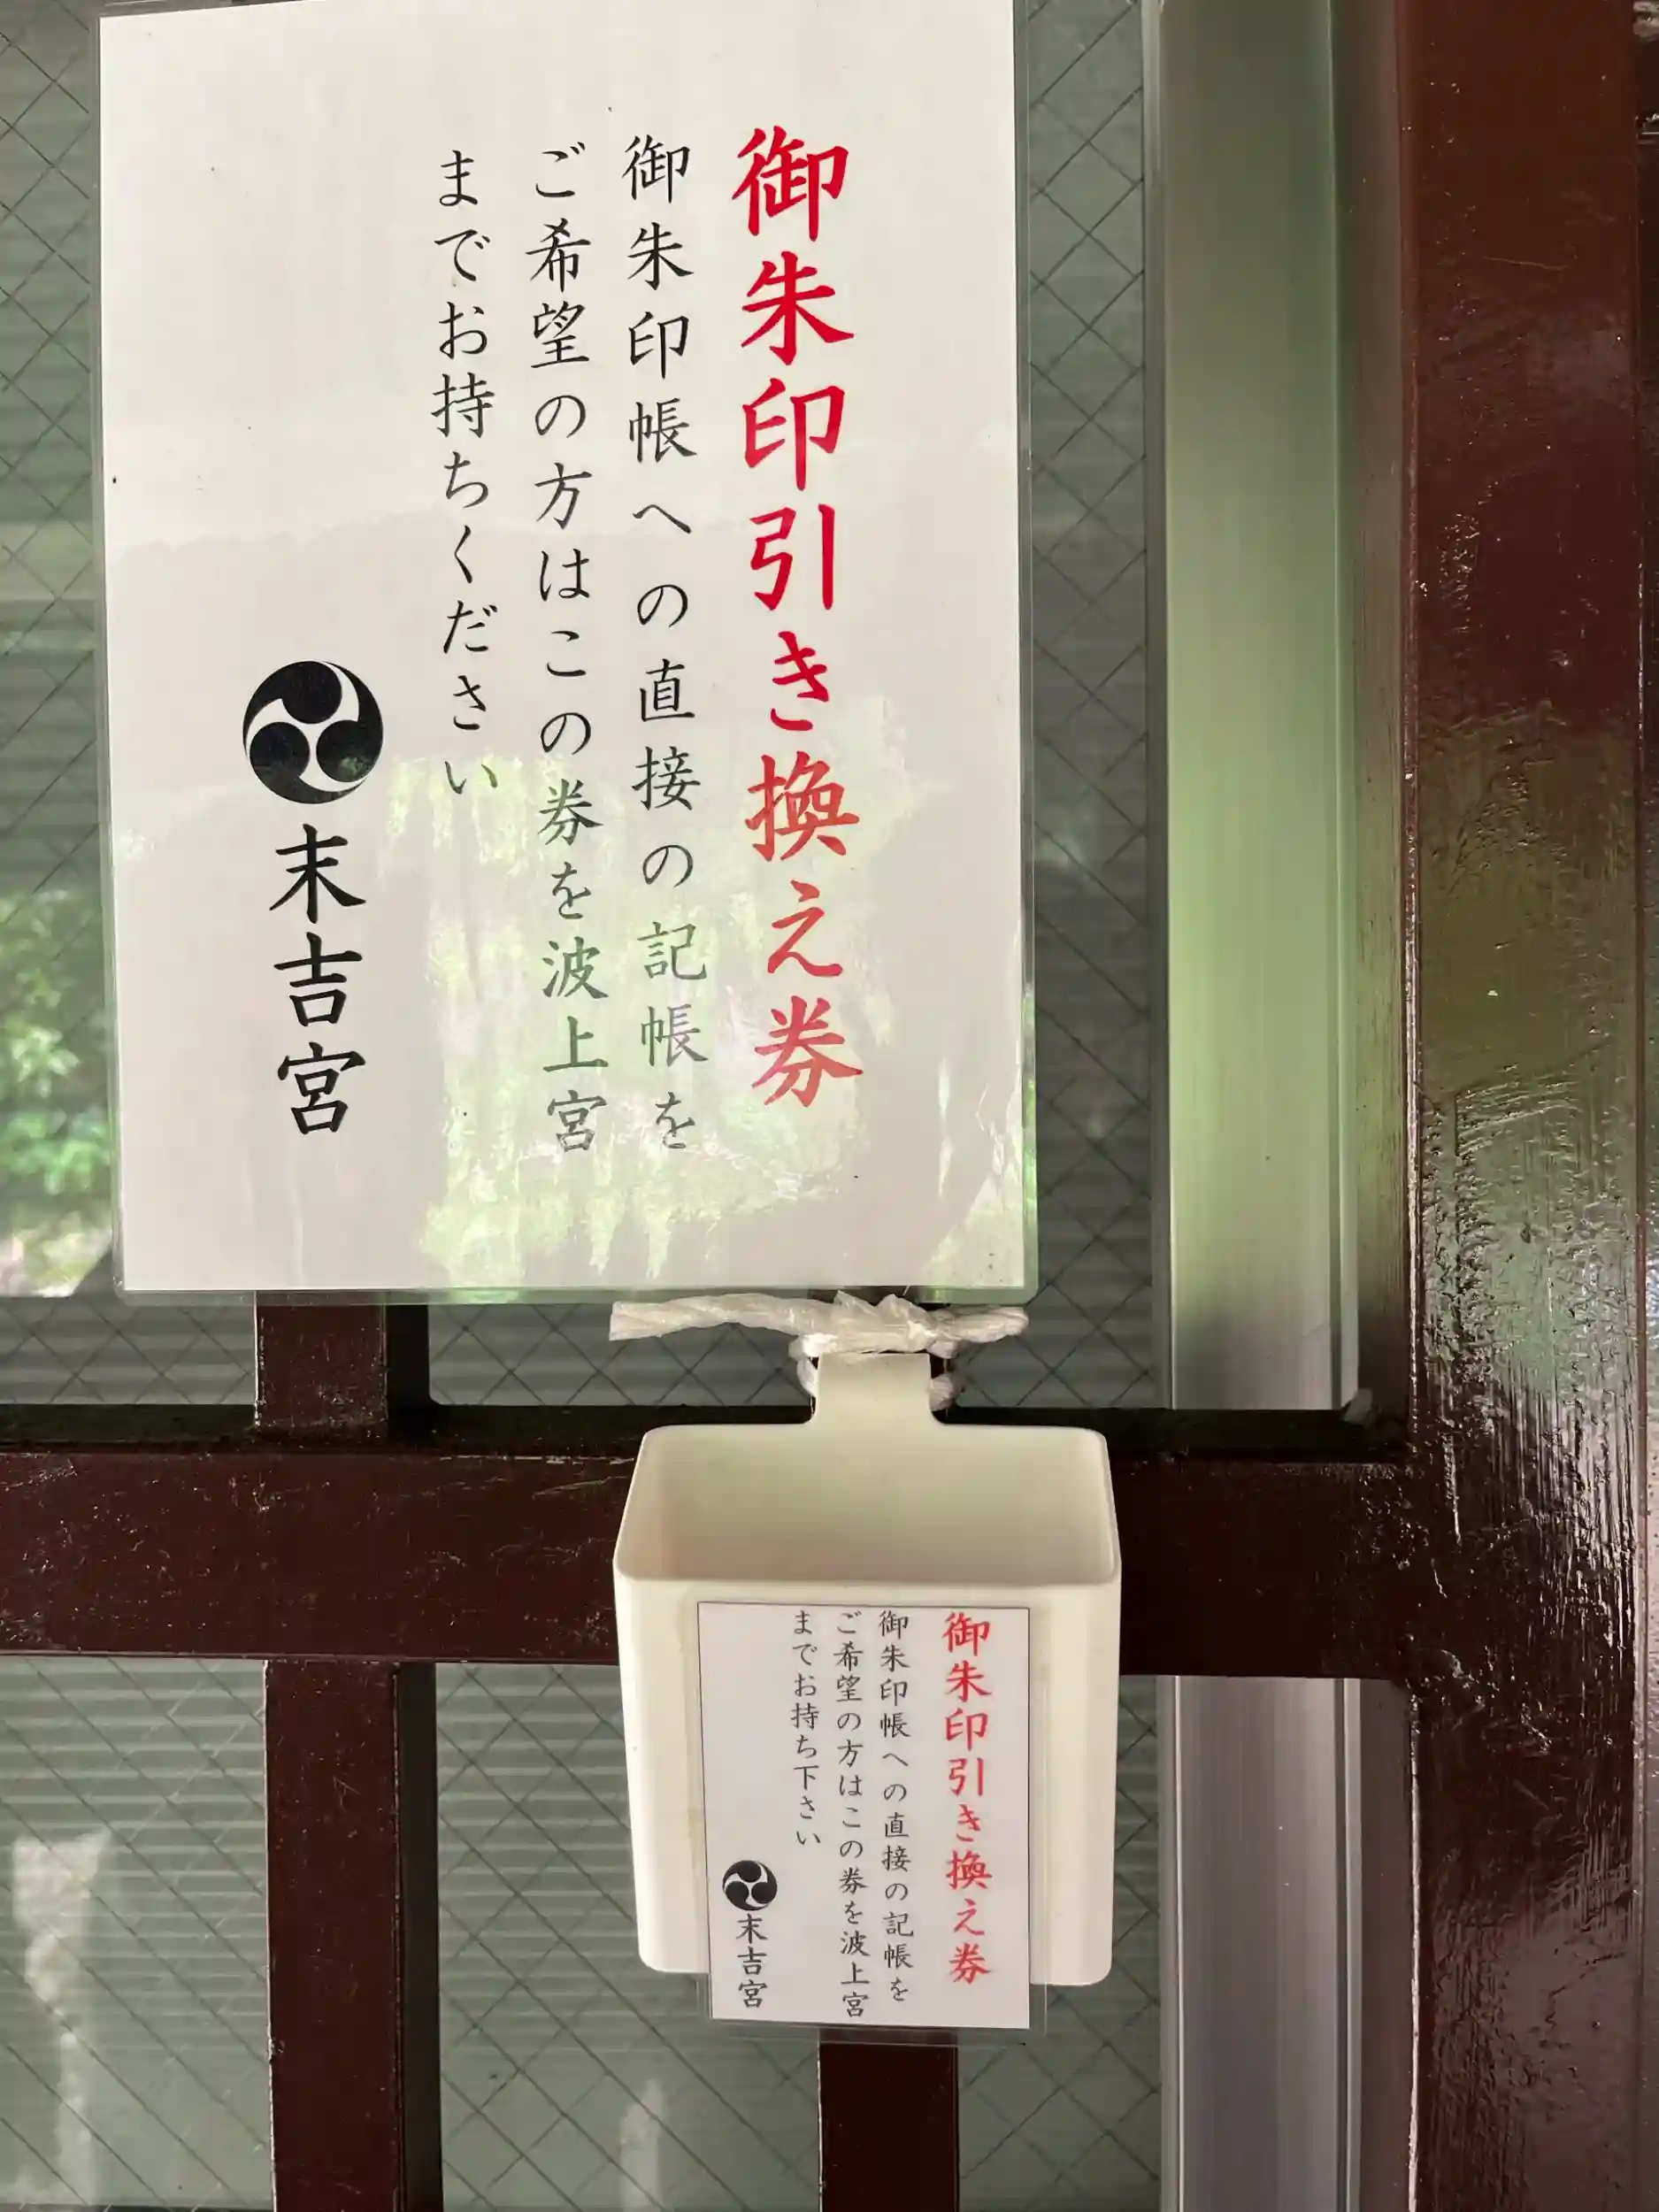 御朱印引き換え券
御朱印帳への直接の記帳を
ご希望の方はこの券を波上宮
までお持ちください
末吉宮
御朱印引き換え券
御朱印帳への直接の記帳を
ご希望の方はこの券を波上宮
までお持ち下さい
末吉宮